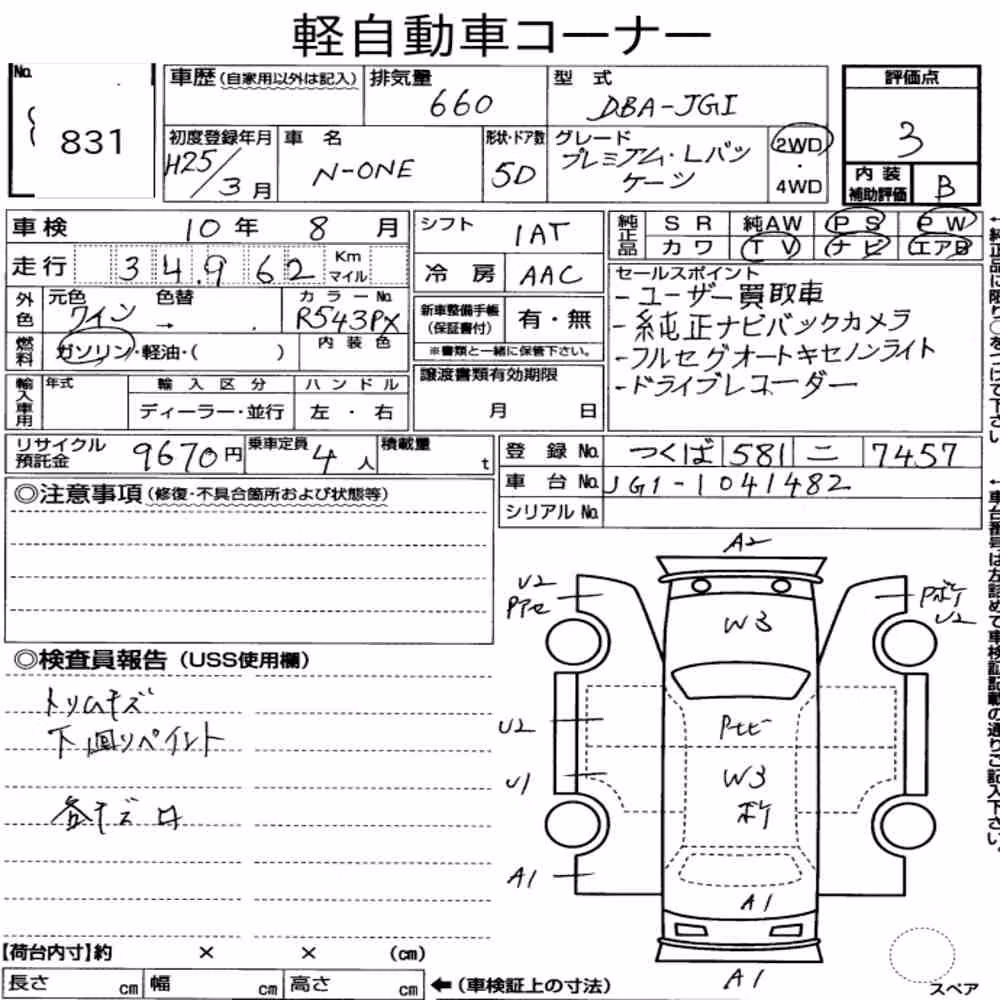 軽自動車コーナー
No. 831
車歴(自家用以外は記入)
排気量 660
型式 DBA-JG1
評価点 3
初度登録年月 H25/3月
車名 N-ONE
形状・ドア数 5D
グレード プレミアム・Lパッケージ
2WD・4WD
内装補助評価 B
車検 10年 8月
走行 34,962 Km マイル
シフト 1AT
冷房 AAC
純正品 SR 純AW PS PW
カワ TV ナビ エアB
外色 元色 ワイン 色替 →
カラーNo. R543PX
内装色
燃料 ガソリン・軽油・( )
新車整備手帳(保証書付) 有・無
※書類と一緒に保管下さい。
セールスポイント
-ユーザー買取車
-純正ナビバックカメラ
-フルセグオートキセノンライト
-ドライブレコーダー
輸入車用 年式 輸入区分 ハンドル
ディーラー・並行 左・右
譲渡書類有効期限
月 日
リサイクル預託金 9670円
乗車定員 4人
積載量 t
登録No. つくば 581 ニ 7457
車台No. JG1-1041482
シリアルNo.
◎注意事項(修復・不具合箇所および状態等)
◎検査員報告(USS使用欄)
トリムキズ
下回リペイント
各キズ
A2
U2
Pアセ
Pボケ
U2
W3
U2
Pセビー
U1
W3
ボケ
A1
A1
A1
スペア
【荷台内寸】約 × × (cm)
長さ cm 幅 cm 高さ cm ←(車検証上の寸法)
←純正品に限り○をつけて下さい。
←車台番号は左詰めで車検証記載の通りご記入下さい。